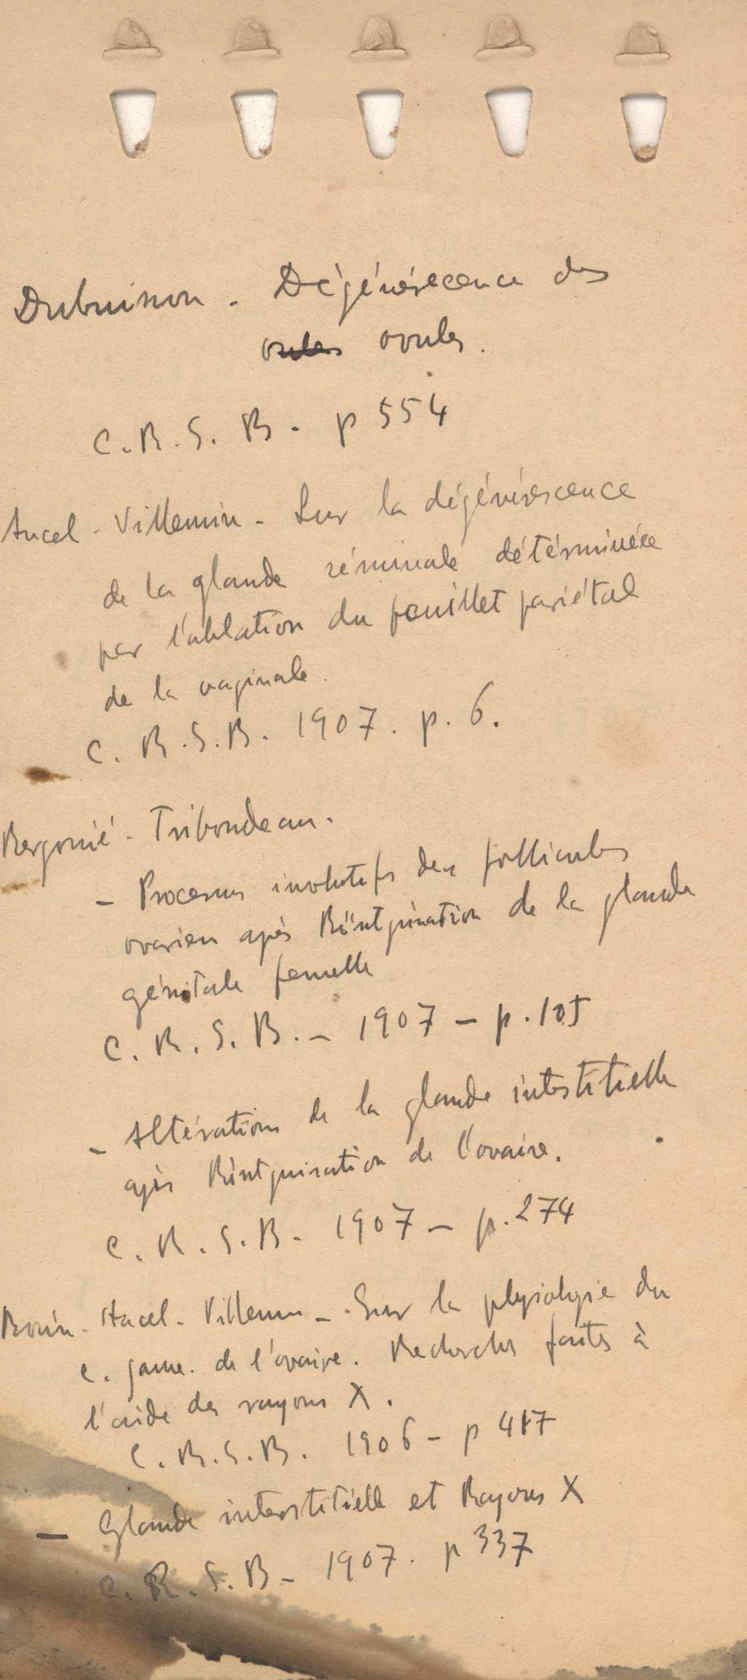 Dubuisson. Dégénérescence des
ovules ovules.
C.R.S.B. p 554
Ancel - Villemin - Sur la dégénérescence
de la glande séminale détérminée
par l'ablation du feuillet pariétal
de la vaginale.
C.R.S.B. 1907. p. 6.
Bergonié - Tribondeau.
- Processus involutifs des follicules
ovariens après Röntgénisation de la glande
génitale femelle
C.R.S.B. - 1907 - p. 105
- Altérations de la glande interstitielle
après Röntgenisation de l'ovaire.
C.R.S.B. 1907 - p. 274
Bouin - Ancel - Villemin - Sur la physiologie du
c. jaune de l'ovaire. Recherches faites à
l'aide des rayons X.
C.R.S.B. 1906 - p 417
- Glande interstitielle et Rayons X
C.R.S.B - 1907. p 337